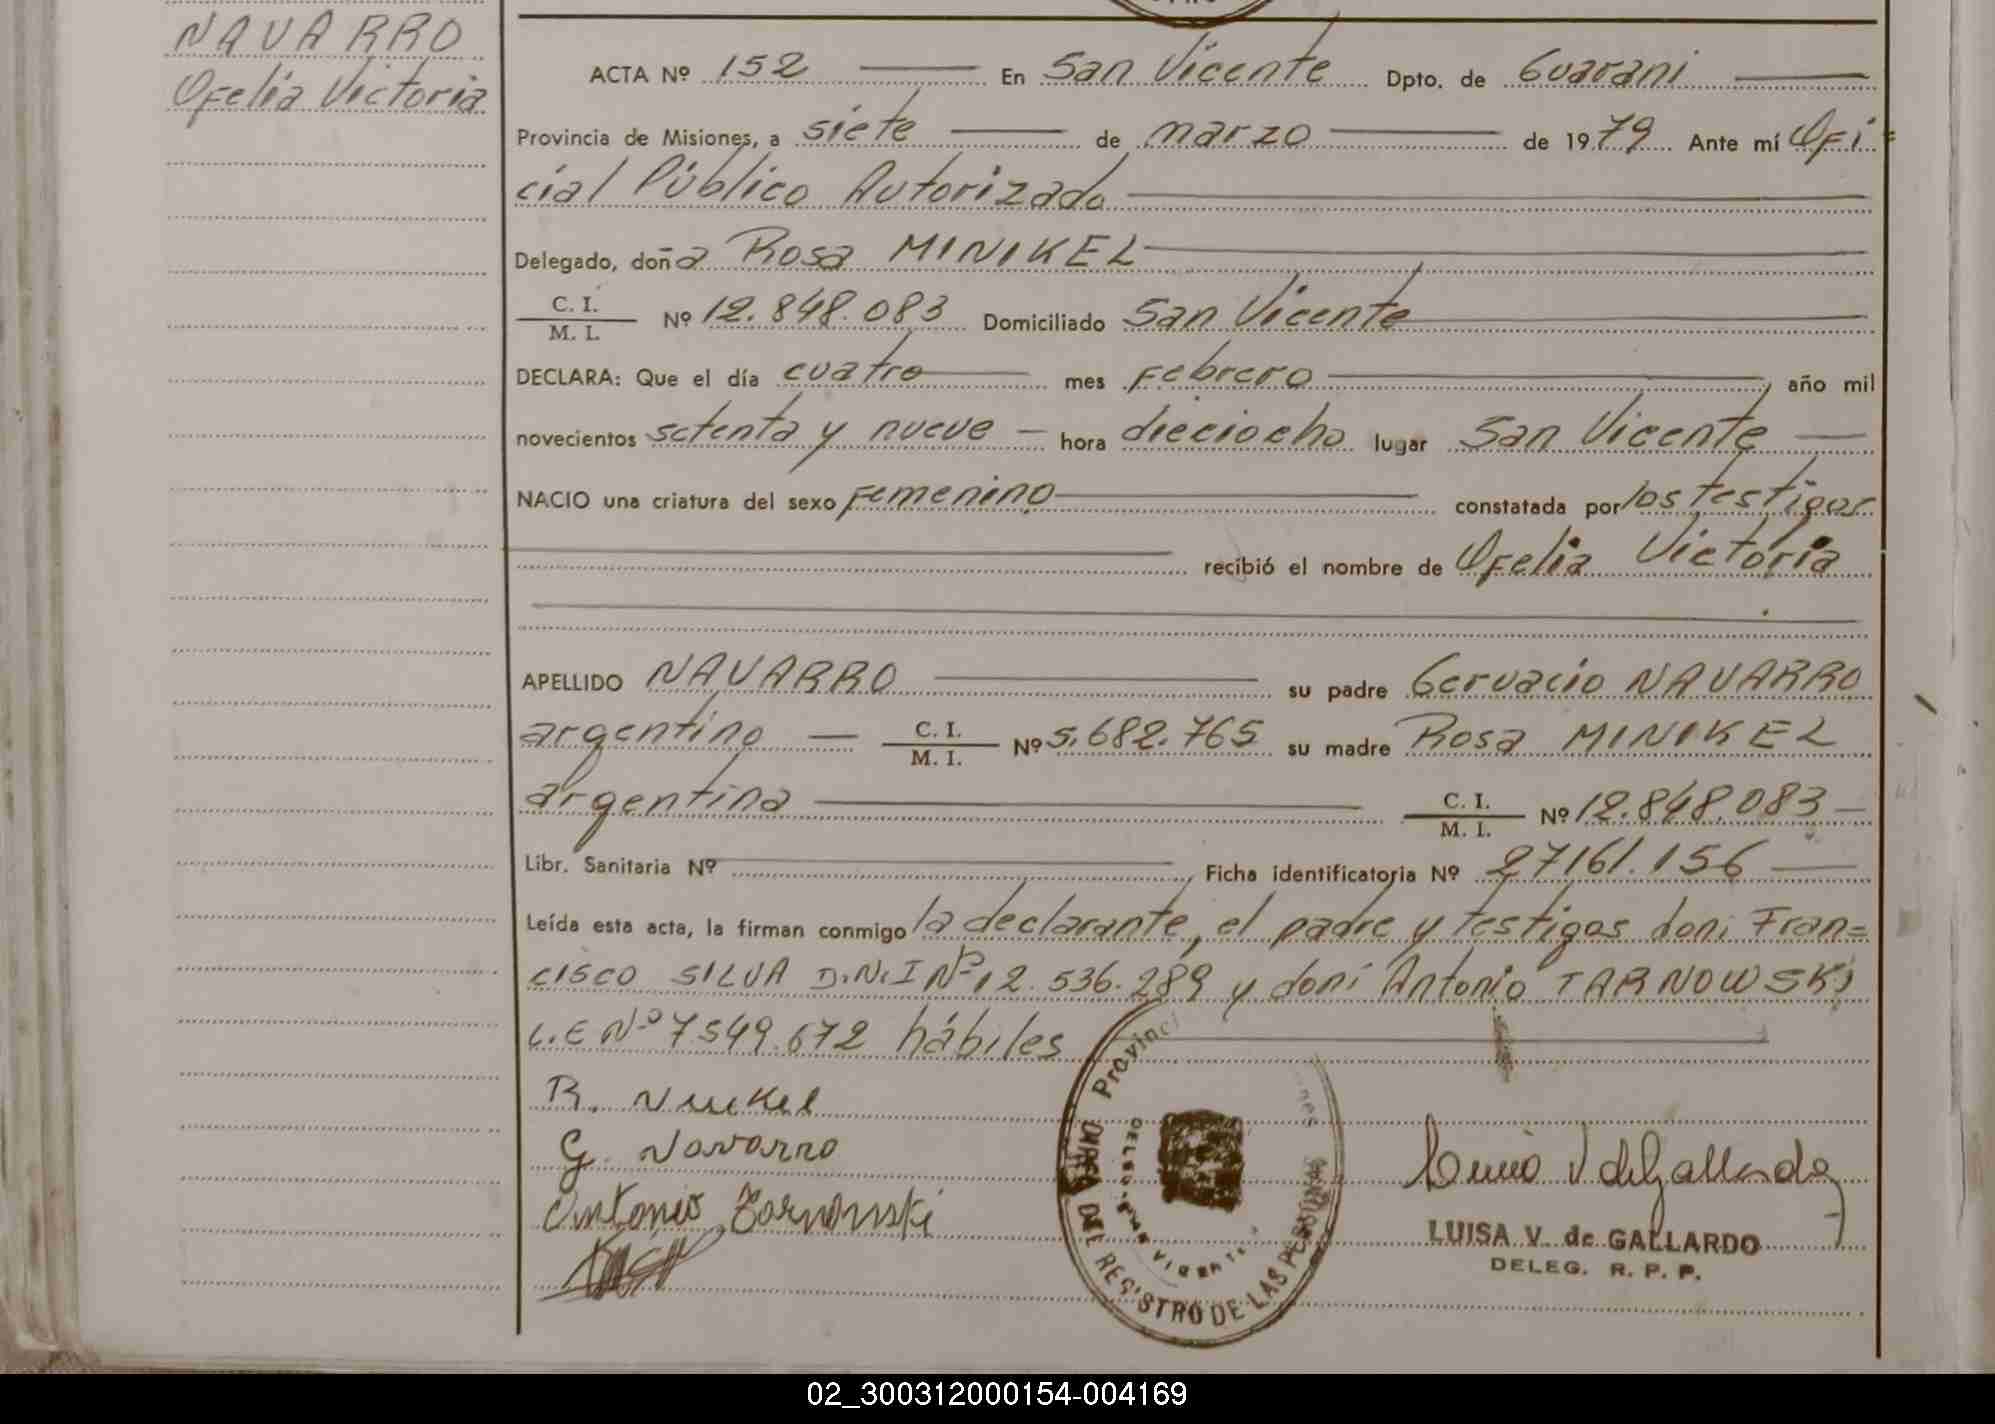 NAVARRO
Ofelia Victoria
ACTA Nº 152 En San Vicente Dpto. de Guarani
Provincia de Misiones, a siete de marzo de 1979 Ante mí Ofi=
cial Público Autorizado
Delegado, doña Rosa MINIKEL
C. I.
M. I. Nº 12.848.083 Domiciliado San Vicente
DECLARA: Que el día cuatro mes Febrero, año mil
novecientos setenta y nueve hora dieciocho lugar San Vicente
NACIO una criatura del sexo Femenino constatada por los testigos
recibió el nombre de Ofelia Victoria
APELLIDO NAVARRO su padre Gervacio NAVARRO
argentino C. I.
M. I. Nº 5.682.765 su madre Rosa MINIKEL
argentina C. I.
M. I. Nº 12.848.083
Libr. Sanitaria Nº Ficha identificatoria Nº 27161.156
Leída esta acta, la firman conmigo la declarante, el padre y testigos don: Fran=
cisco SILVA D.N.I Nº 12.536.289 y don: Antonio TARNOWSKI
L.E Nº 7549.672 hábiles
G. Navarro
Antonio Tarnowski
Provinci
DELEG. SAN VICENTE
REGISTRO DE LAS PERSONAS
LUISA V. de GALLARDO
DELEG. R. P. P.
02_300312000154-004169